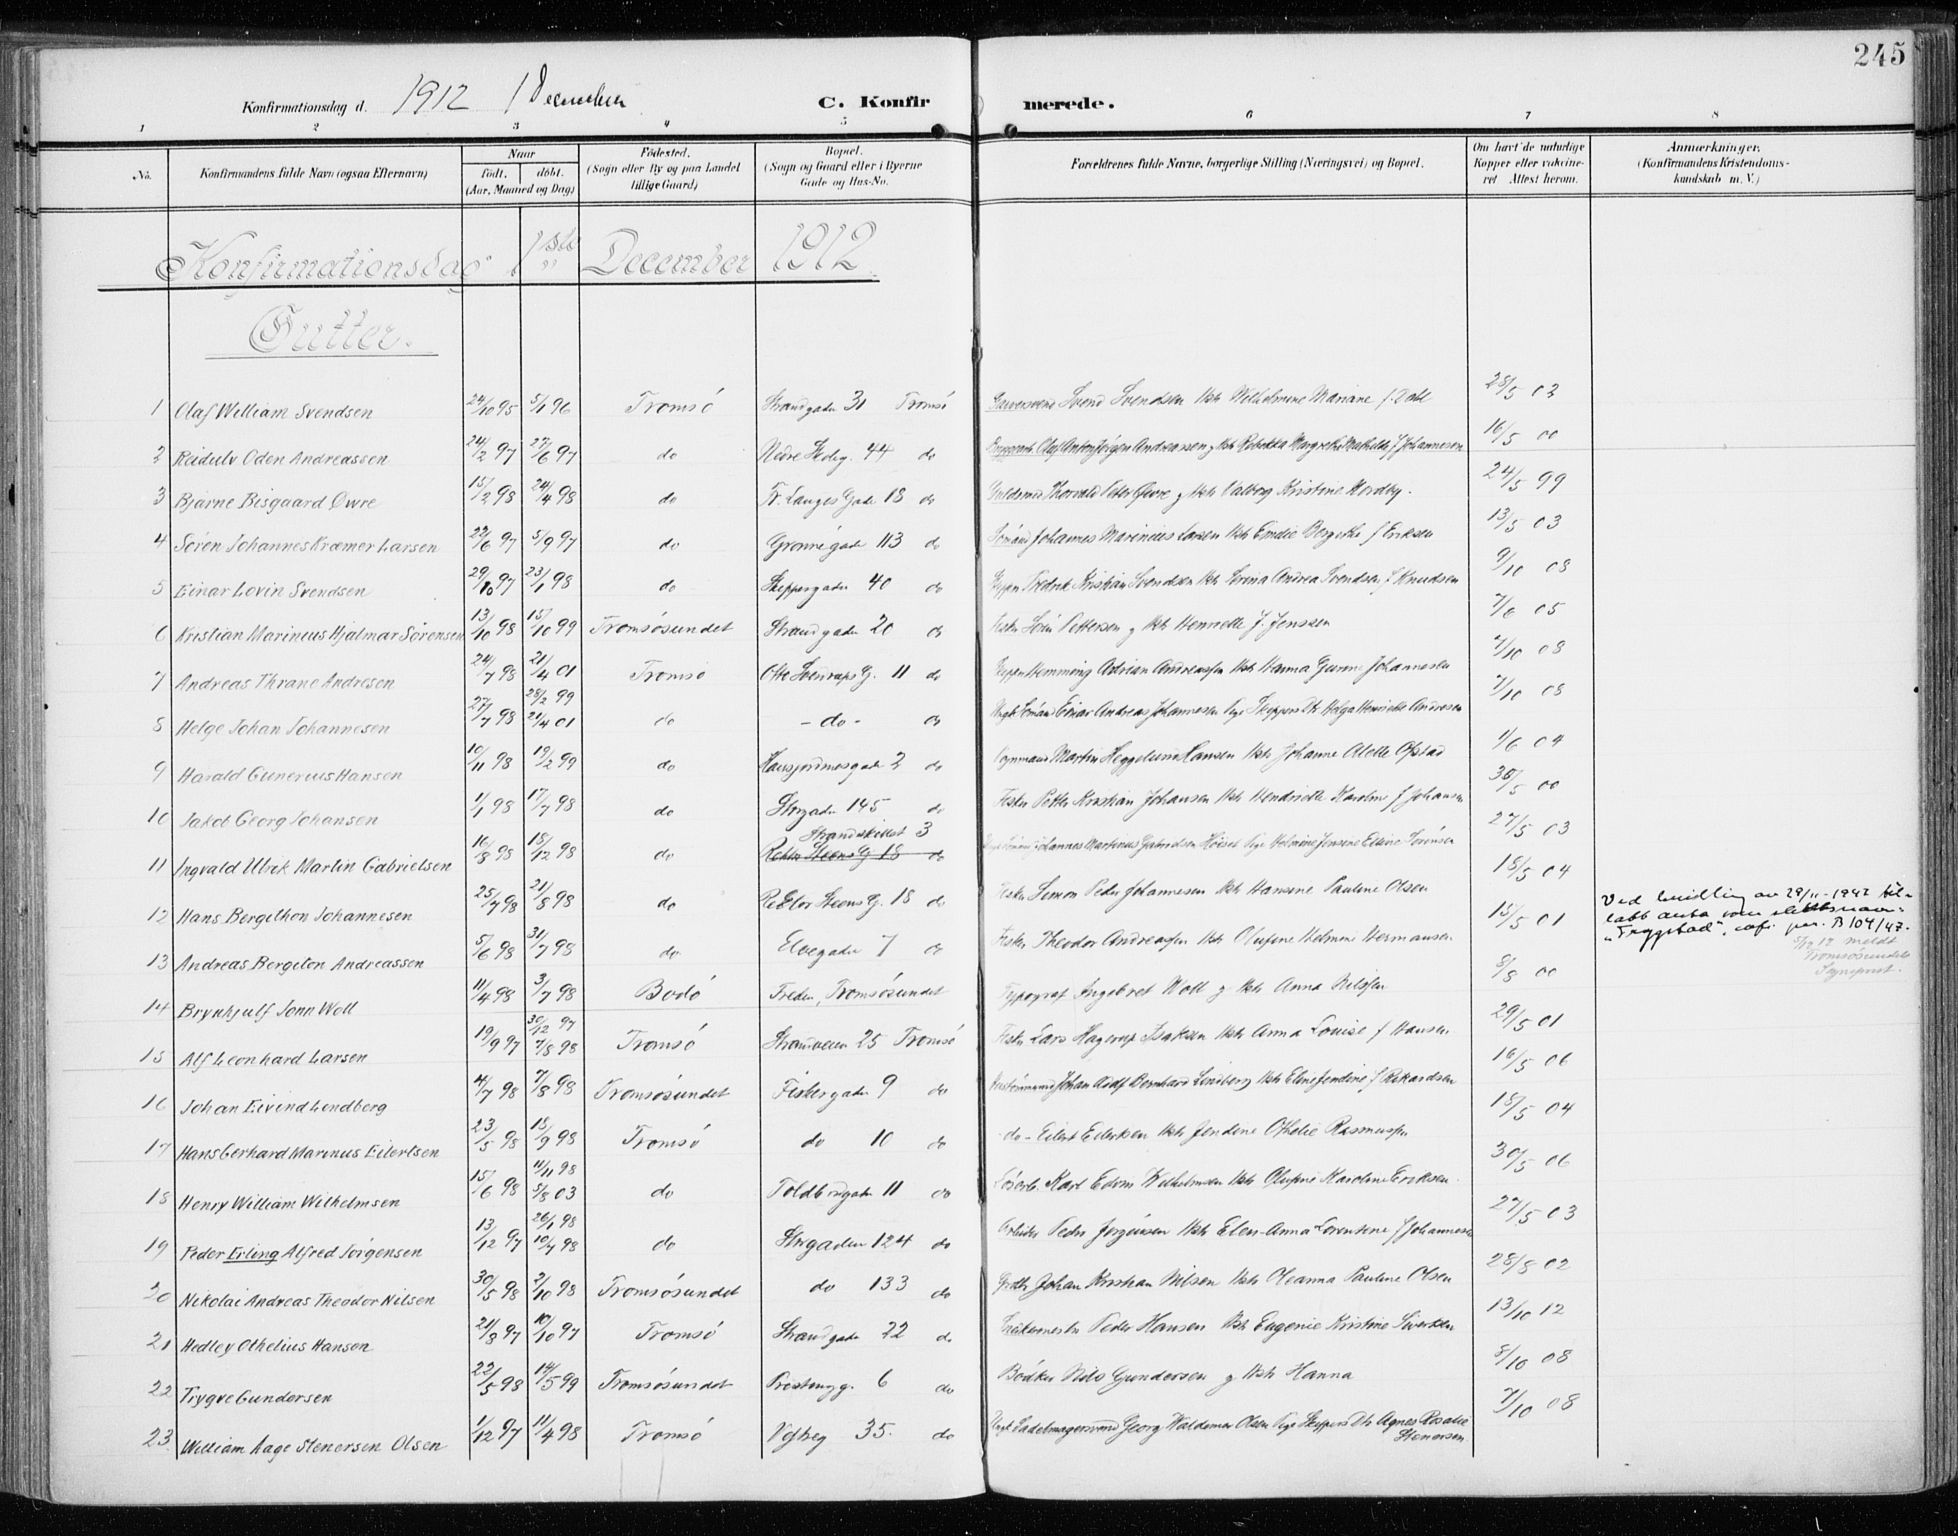 245
Konfirmationsdag d. 1912 1 December C. Konfirmerede.
1 2 3 4 5 6 7 8
No. Konfirmandens fulde Navn (ogsaa Efternavn) Naar födt. döbt. (Aar, Maaned og Dag) Födested. (Sogn eller By og paa Landet tillige Gaard) Bopæl. (Sogn og Gaard eller i Byerne Gade og Hus-No. Forældrenes fulde Navne, borgerlige Stilling (Næringsvei) og Bopæl. Om havt de naturlige Kopper eller vaccineret Attest herom. Anmærkninger. (Konfirmandens Kristendomskundskab m. V.)
Konfirmationsdag 1ste December 1912.
Gutter.
1 Olaf William Svendsen 24/10 95 5/1 96 Tromsö Strandgaden 31 Tromsö Svend Svendsen Hst Wilhelmine Mariane f. Dahl 28/5 02
2 Reidulv Oden Andreassen 24/2 97 27/6 97 do Nedre Skoleg. 44 do Olaf Anton Jörgen Andreassen og Hst Rebekka Margrethe Mathilde f Johannesen 16/5 00
3 Bjarne Bisgaard Øwre 15/2 98 24/4 98 do Fr. Langes Gade 18 do Guldsmed Thorvald Peter Øwre og Hst Valborg Kristine Nordby. 24/5 99
4 Sören Johannes Kræmer Larsen 22/6 97 5/9 97 do Grönnegaden 113 do Sömand Johannes Marinius Larsen Hst Emilie Bergithe f Eriksen 13/5 03
5 Einar Lovin Svendsen 29/10 97 23/1 98 do Skippergaden 40 do Fredrik Kristian Svendsen Hst Lorina Andrea Svendsen f Knudsen 9/10 08
6 Kristian Marinius Hjalmar Sörensen 13/10 98 15/10 99 Tromsösundet Strandgaden 20 do Fisker Sörin Pettersen og Hst Henriette J. Jenssen 7/6 05
7 Andreas Thrane Andresen 24/7 98 21/4 01 Tromsö Otto Sverdrups G. 11 do Hemming Adrian Andreassen Hst Hanna Gurine Johannesen 7/10 08
8 Helge Johan Johannesen 27/7 98 28/2 99 21/4 01 do - do - do Ungk Sömand Einar Andreas Johannesen Pige Skippers Dtr Helga Henriette Andresen 7/10 08
9 Harald Gunerius Hansen 10/11 98 19/2 99 do Hansjordnesgaden 2 do Martin Heggelund Hansen Hst Johanne Alette Ofstad 1/6 04
10 Jakob Georg Johansen 1/1 98 17/7 98 do Storgaden 145 do Fisker Petter Kristian Johansen Hst Hendriette Karoline f Johansen 30/5 00
11 Ingvald Ulrik Martin Gabrielsen 16/8 98 18/12 98 do Strandskillet 3 Rektor Steens G. 18 do Johannes Martinus Gabrielsen Pige Helmine Jensine Elvine Sörensen 27/5 03
12 Hans Bergithon Johannesen 25/7 98 21/8 98 do Rektor Steens G. 18 do Fisker Simon Peder Johannesen Hst Hansine Pauline Olsen 18/5 04
Ved av 29/11-1947
"Tryggstad", B 104/47.
13 Andreas Bergeton Andreassen 5/6 98 31/7 98 do Elvegaden 7 do Fisker Theodor Andreassen Hst Olufine Helmine Hermansen 15/5 01
meldt Tromsösundets Sogneprest.
14 Brynhjulf Jonn Woll 11/4 98 3/7 98 Bodö Tromsösundet Typograf Ingebret Woll og Hst Anna Nilssen 8/8 00
15 Alf Leonhard Larsen 19/9 97 30/12 97 7/8 98 Tromsö Strandveien 25 Tromsö Fisker Lars Hagerup Isaksen Hst Anna Louise f Hansen 29/5 01
16 Johan Eivind Lendberg 4/7 98 7/8 98 Tromsösundet Fiskergaden 9 do Johan Adolf Bernhard Lindberg Hst Eline Jendine f Rikardsen 16/5 06
17 Hans Gerhard Marinus Eilertsen 23/5 98 18/9 98 Tromsö do 10 do - do - Eilert Eilertsen Hst Jendine Othelie Rasmussen 18/5 04
18 Henry William Wilhelmsen 15/6 98 11/11 98 5/8 03 do Toldbodgaden 11 do Karl Edom Wilhelmsen Hst Olufine Karoline Eriksen. 30/5 06
19 Peder Erling Alfred Jörgensen 13/12 97 26/1 98 10/7 98 do Storgaden 124 do Arbeider Peder Jörgensen Hst Elen-Anna Lorentsene f Johannesen 27/5 03
20 Nikolai Andreas Theodor Nilsen 30/5 98 2/10 98 Tromsösundet do 133 do Johan Kristian Nilsen Hst Oleanna Pauline Olsen 28/5 02
21 Hedley Othelius Hansen 21/8 97 10/10 97 Tromsö Strandgaden 22 do Peder Hansen Hst Eugenie Kristine Sivertsen 13/10 12
22 Trygve Gundersen 22/5 98 14/5 99 Tromsösundet 6 do Bödker Nils Gundersen og Hst Hanna 8/10 08
23. William Aage Stenersen Olsen 1/12 97 11/4 98 Tromsö 35. do Ungk Sadelmagersvend Georg Waldemar Olsen Pige Skippers Dtr Agnes Rosalie Stenersen 7/10 08